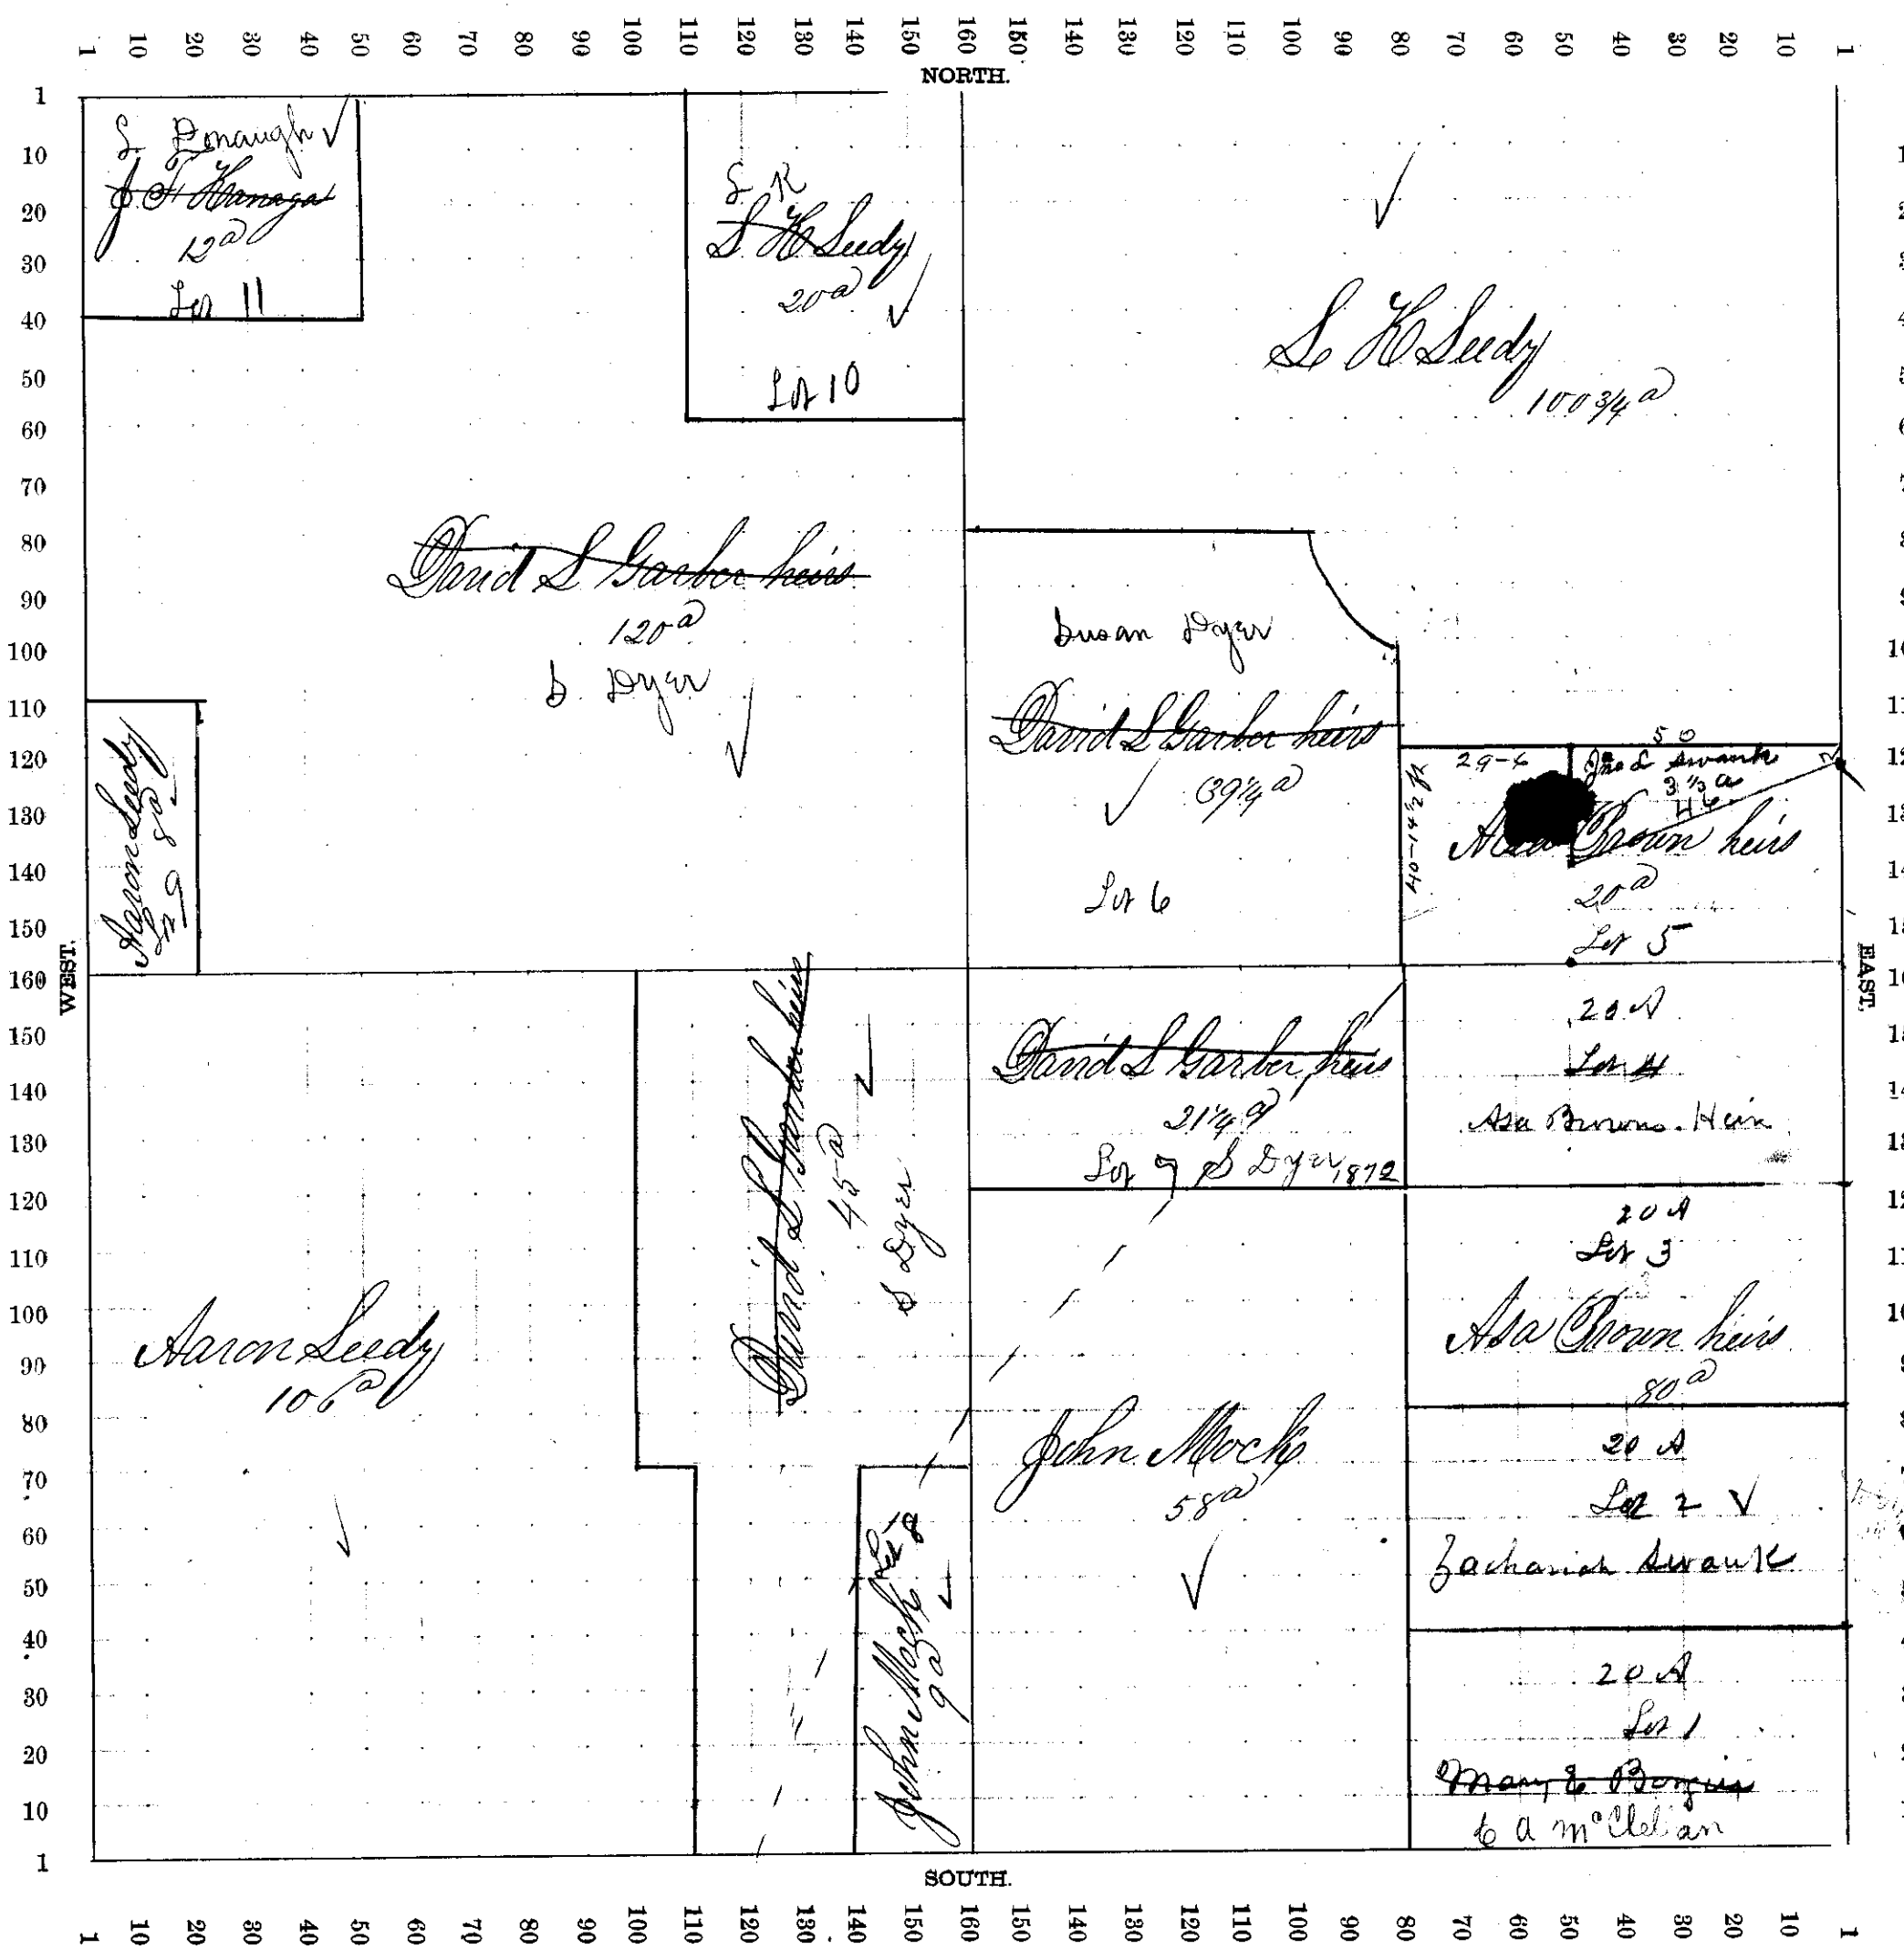 1 10 20 30 40 50 60 70 80 90 100 110 120 130 140 150 160 150 140 130 120 110 100 90 80 70 60 50 40 30 20 10 1
NORTH.
1
10
20
30
40
50
60
70
80
90
100
110
120
130
140
150
160
150
140
130
120
110
100
90
80
70
60
50
40
30
20
10
1
WEST.
EAST.
S Donaugh
J F Kanaga
12 a
Lot 11
S K
S K Leedy
20 a
Lot 10
S K Leedy
100 3/4 a
David L Garber heirs
120 a
S Dyer
Susan Dyer
David L Garber heirs
39 1/4 a
Lot 6
Aaron Leedy
Lot 9 8 a
50
29-6
Jno L Swank
3 1/3 a
46
Asa Brown heirs
20 a
Lot 5
David L Garber heirs
45 a
S Dyer
David L Garber heirs
21 1/4 a
Lot 7 S Dyer 1872
20 A
Lot 4
Asa Browns Heirs
20 A
Lot 3
Asa Brown heirs
80 a
Aaron Leedy
106 a
John Mock
58 a
20 A
Lot 2
Zachariah Swank
John Mock Lot 8
9 a
20 A
Lot 1
Mary E
McClellan
SOUTH.
1 10 20 30 40 50 60 70 80 90 100 110 120 130 140 150 160 150 140 130 120 110 100 90 80 70 60 50 40 30 20 10 1